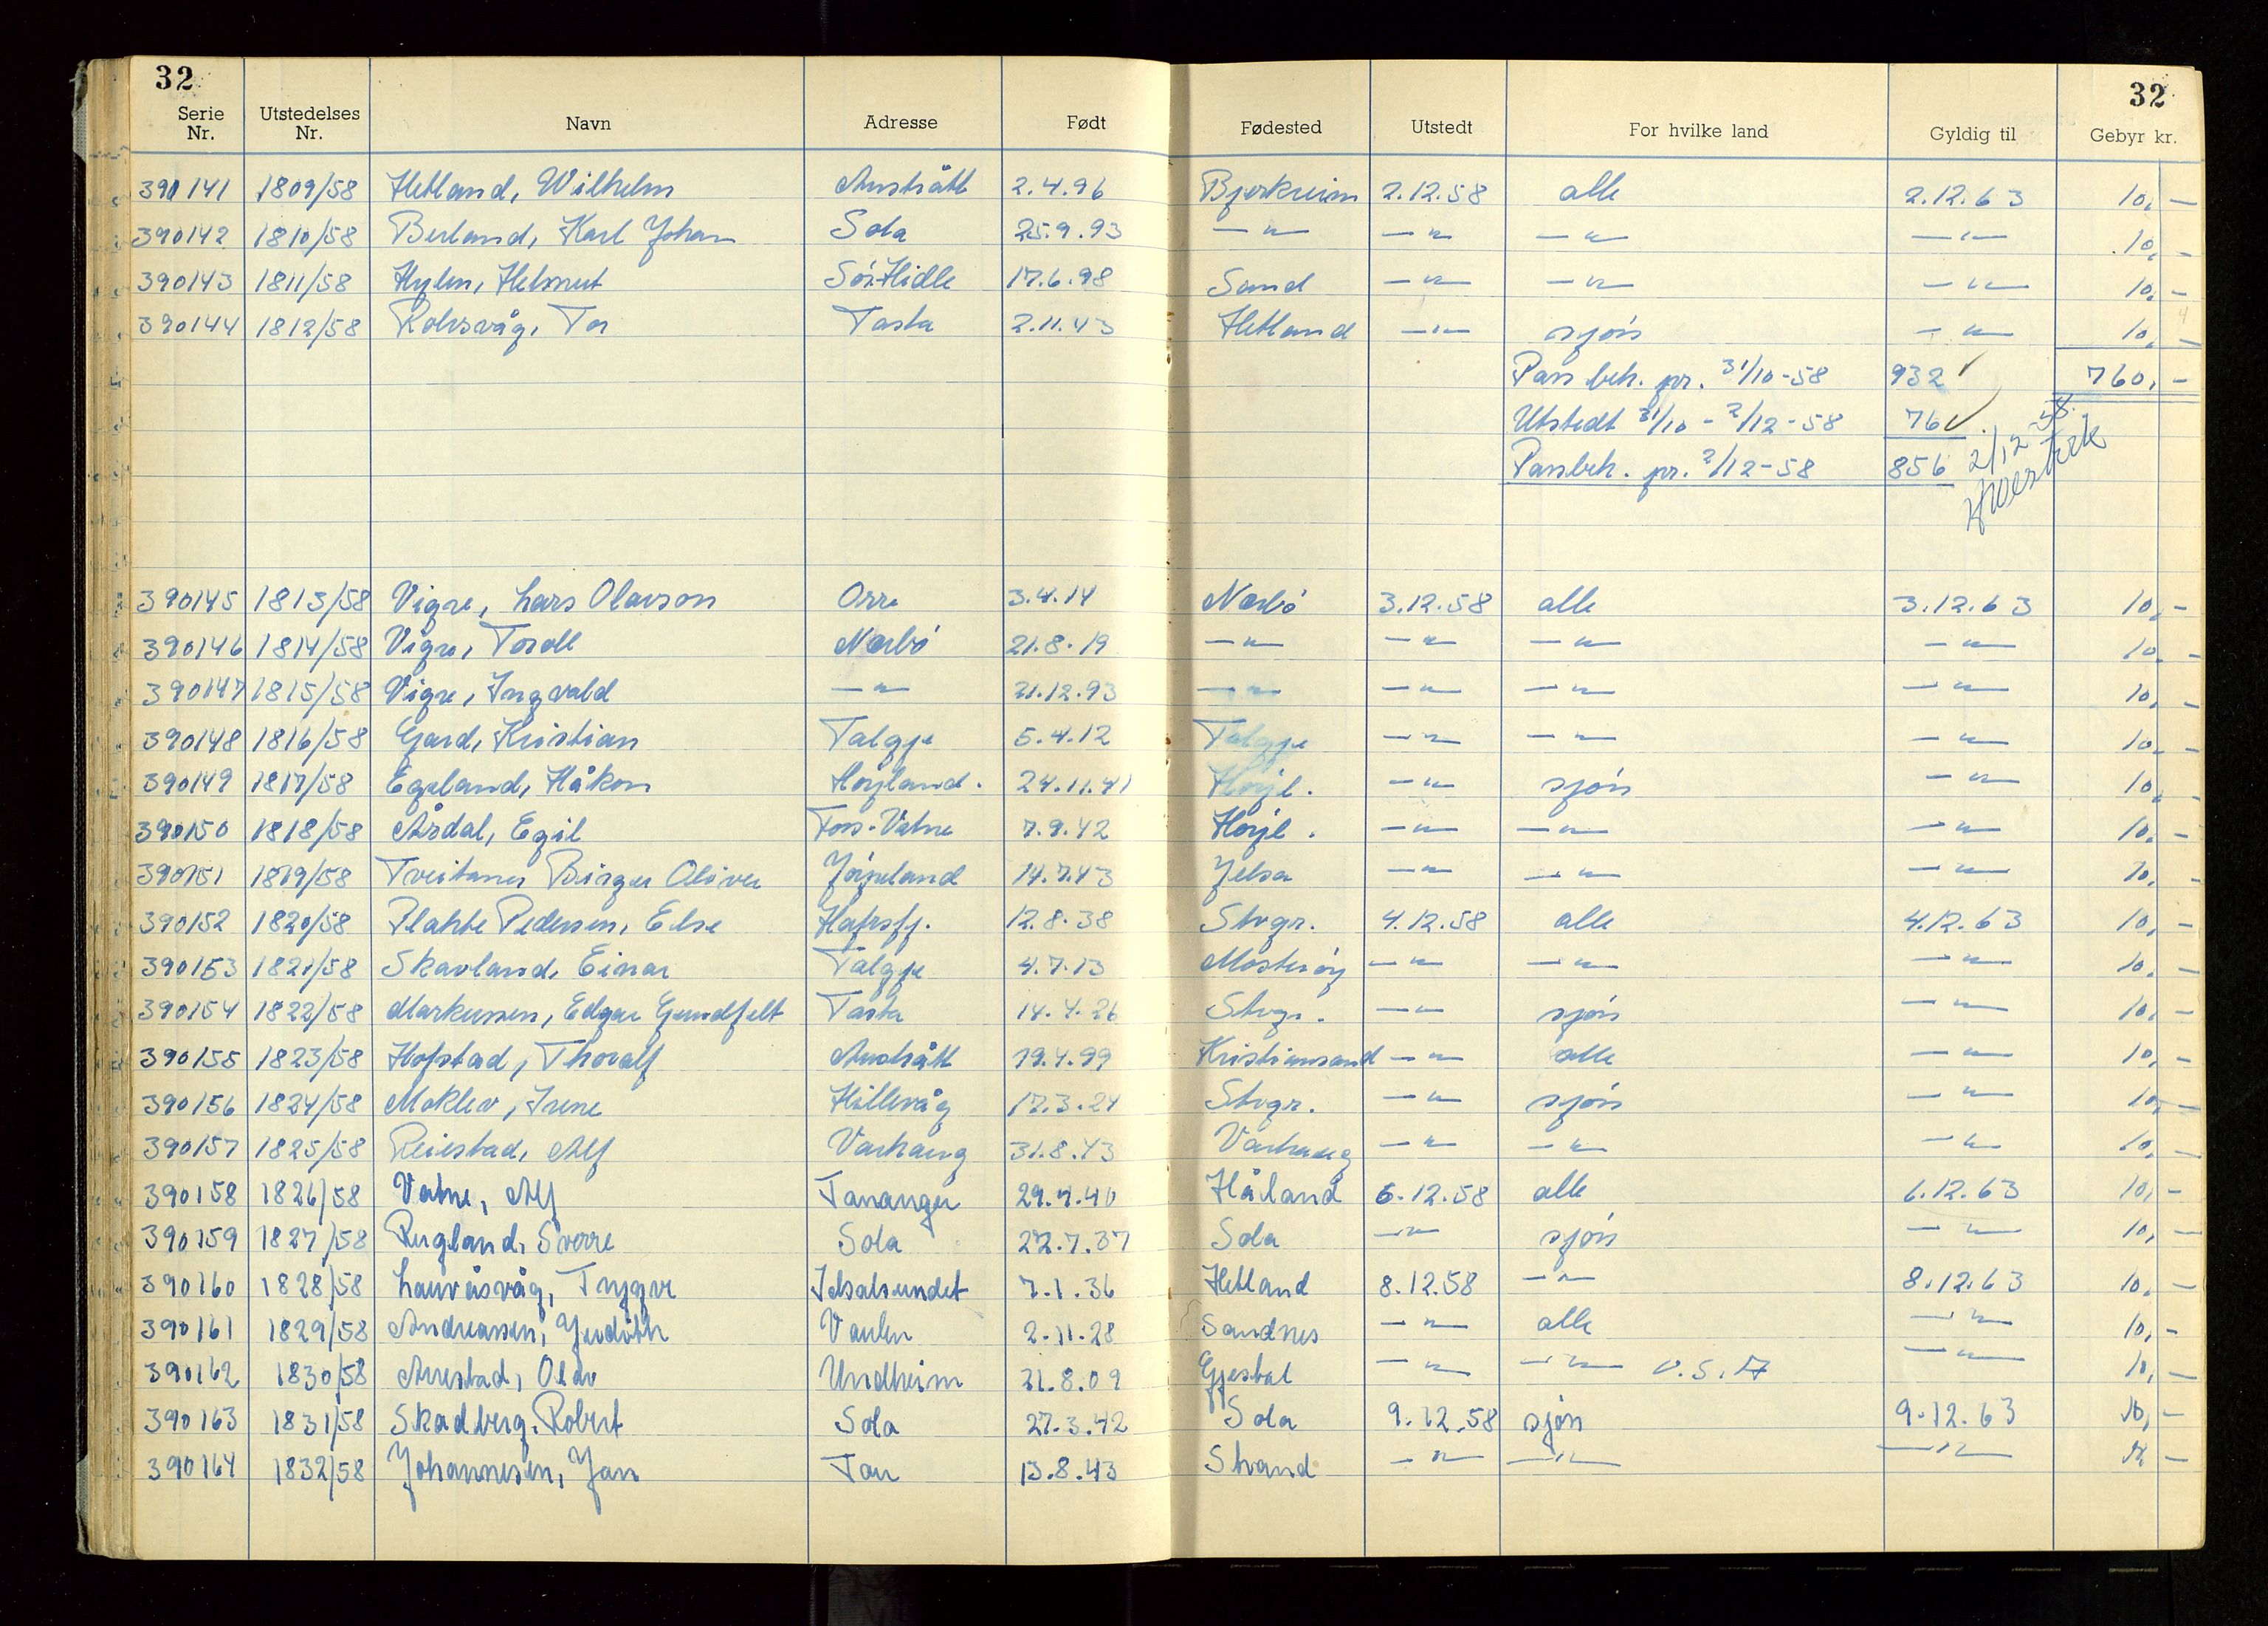 32 32
Serie Nr. Utstedelses Nr. Navn Adresse Født Fødested Utstedt For hvilke land Gyldig til Gebyr kr.
390141 1809/58 Hetland, Wilhelm Austrått 2.4.96 Bjerkreim 2.12.58 alle 2.12.63 10,-
390142 1810/58 Berland, Karl Johan Sola 25.9.93 -"- -"- -"- -"- 10,-
390143 1811/58 Hylen, Helmut Sør-Hidle 17.6.98 Sand -"- -"- -"- 10,-
390144 1812/58 Tor Tasta 2.11.43 Hetland -"- sjøn -"- 10,-
Pass beh. pr. 31/10-58 932 760,-
Utstedt 31/10 - 2/12-58 76
Passbeh. pr. 2/12-58 856 2/12-58
390145 1813/58 Vigre, Lars Olavson Orre 3.4.14 Nærbø 3.12.58 alle 3.12.63 10,-
390146 1814/58 Vigre, Torall Nærbø 21.8.19 -"- -"- -"- -"- 10,-
390147 1815/58 Vigre, Ingvald -"- 21.12.93 -"- -"- -"- -"- 10,-
390148 1816/58 Gard, Kristian Talgje 5.4.12 Talgje -"- -"- -"- 10,-
390149 1817/58 Egeland, Håkon Høyland. 24.11.41 Høyl. -"- sjøn -"- 10,-
390150 1818/58 Årdal, Egil Foss-Vatne 7.9.42 Høyl. -"- -"- -"- 10,-
390151 1819/58 Tveitanes Birger Oliver Jørpeland 14.7.43 Jelsa -"- -"- -"- 10,-
390152 1820/58 Plahte Pedersen, Else Hafrsfj. 12.8.38 Stvgr. 4.12.58 alle 4.12.63 10,-
390153 1821/58 Skavland, Einar Talgje 4.7.13 Mosterøy -"- -"- -"- 10,-
390154 1822/58 Markussen, Edgar Gundfelt Tasta 14.4.26 Stvgr. -"- sjøn -"- 10,-
390155 1823/58 Hofstad, Thoralf Austrått 19.4.99 Kristiansand -"- alle -"- 10,-
390156 1824/58 Møklev, Irene Hillevåg 17.3.24 Stvgr. -"- sjøn -"- 10,-
390157 1825/58 Reiestad, Alf Varhaug 31.8.43 Varhaug -"- -"- -"- 10,-
390158 1826/58 Vatne, Alf Tananger 29.7.40 Håland 6.12.58 alle 6.12.63 10,-
390159 1827/58 Rugland, Sverre Sola 22.7.37 Sola -"- sjøn -"- 10,-
390160 1828/58 Lauvåsvåg, Trygve Idsalsundet 7.1.36 Hetland 8.12.58 -"- 8.12.63 10,-
390161 1829/58 Andreassen, Judith Vaulen 2.11.28 Sandnes -"- alle -"- 10,-
390162 1830/58 Arrestad, Olav Undheim 21.8.09 Gjestal -"- -"- U.S.A -"- 10,-
390163 1831/58 Skadberg, Robert Sola 27.3.42 Sola 9.12.58 sjøn 9.12.63 10,-
390164 1832/58 Johannesen, Jan Tau 13.8.43 Strand -"- -"- -"- 10,-